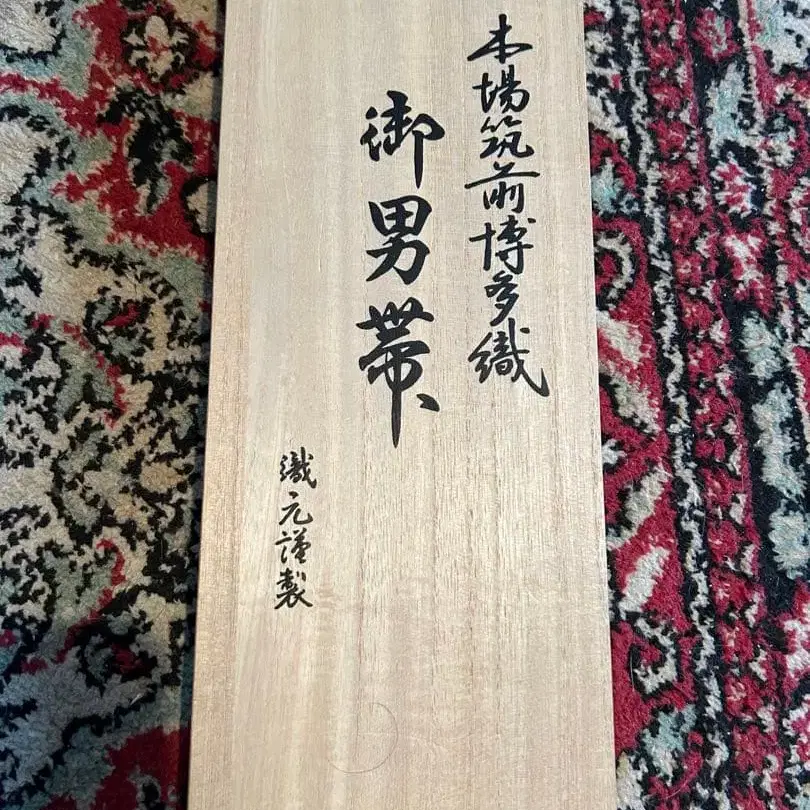 本場筑前博多織
御男帯
織元謹製